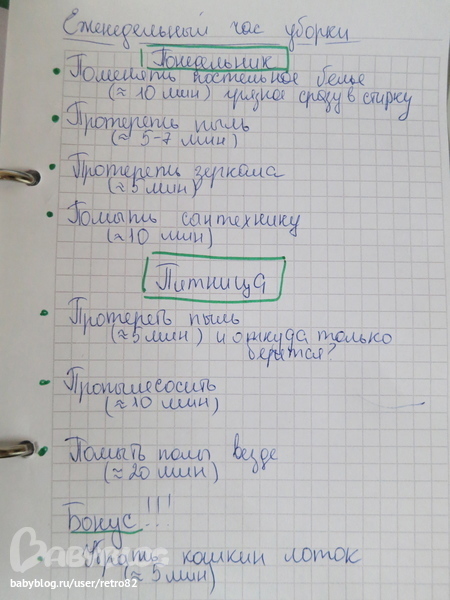 Еженедельный час уборки
Понедельник
Поменять постельное белье
(≈ 10 мин) грязное сразу в стирку
Протереть пыль
(≈ 5-7 мин)
Протереть зеркала
(≈ 5 мин)
Помыть сантехнику
(≈ 10 мин)
Пятница
Протереть пыль
(≈ 5 мин) и откуда только
берется?
Пропылесосить
(≈ 10 мин)
Помыть полы везде
(≈ 20 мин)
Бонус!!!
Убрать кошкин лоток
(≈ 5 мин)
BABYBLOG
babyblog.ru/user/retro82